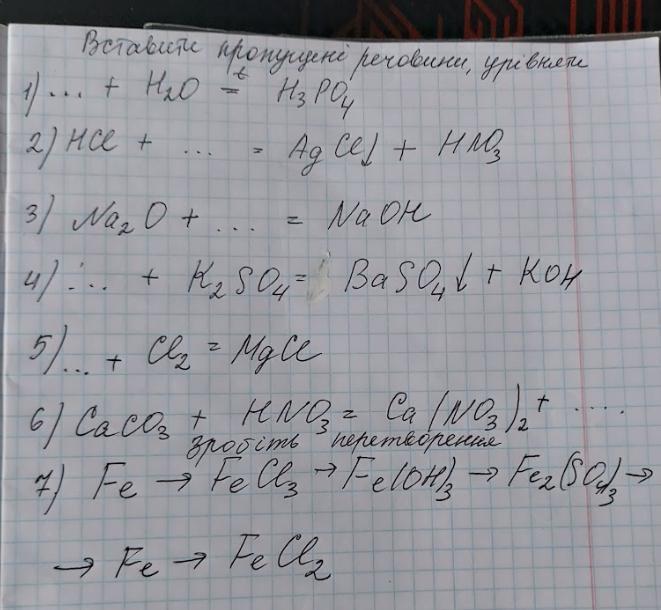 Вставити пропущені речовини, урівняти
1) ... + H₂O =ᵗ H₃PO₄
2) HCl + ... = AgCl↓ + HNO₃
3) Na₂O + ... = NaOH
4) ... + K₂SO₄ = BaSO₄↓ + KOH
5) ... + Cl₂ = MgCl
6) CaCO₃ + HNO₃ = Ca(NO₃)₂ + ....
зробіть перетворення
7) Fe → FeCl₃ → Fe(OH)₃ → Fe₂(SO₄)₃ →
→ Fe → FeCl₂